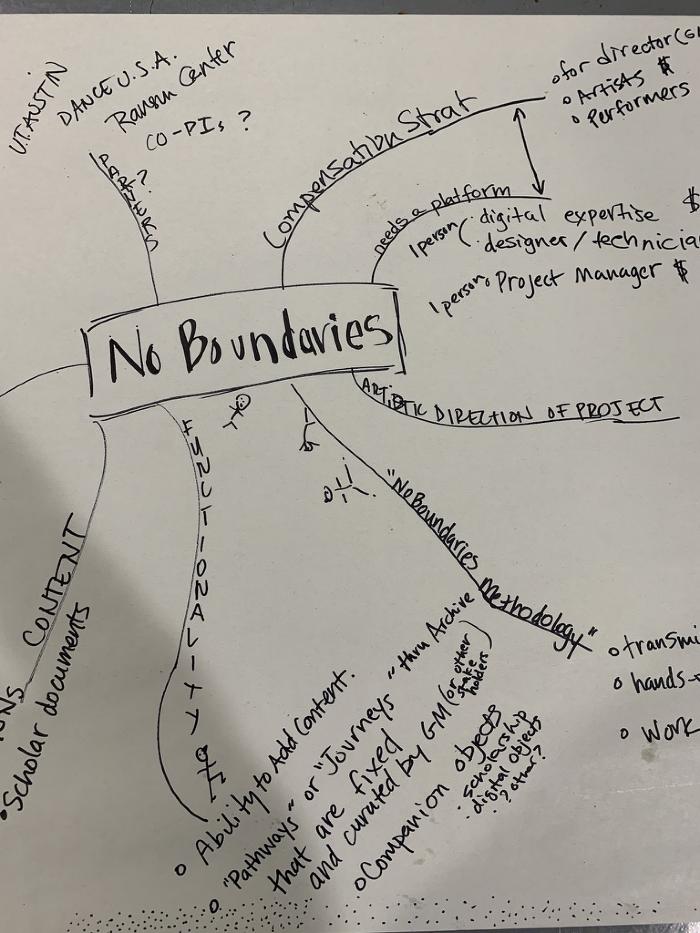 U.T. AUSTIN
DANCE U.S.A.
CO-PIs ?
PARTNERS?
Compensation Strat
for director(s)
Artists $
Performers
needs a platform
1 person ( digital expertise $
designer / technicia
1 person Project Manager $
No Boundaries
ARTISTIC DIRECTION OF PROJECT
"No Boundaries Methodology"
transmi
hands-
work
FUNCTIONALITY
Ability to Add Content.
"Pathways" or "Journeys" thru Archive
that are fixed
and curated by GM (or other
stake
holders)
Companion objects
scholarship
digital objects
? other?
CONTENT
Scholar documents